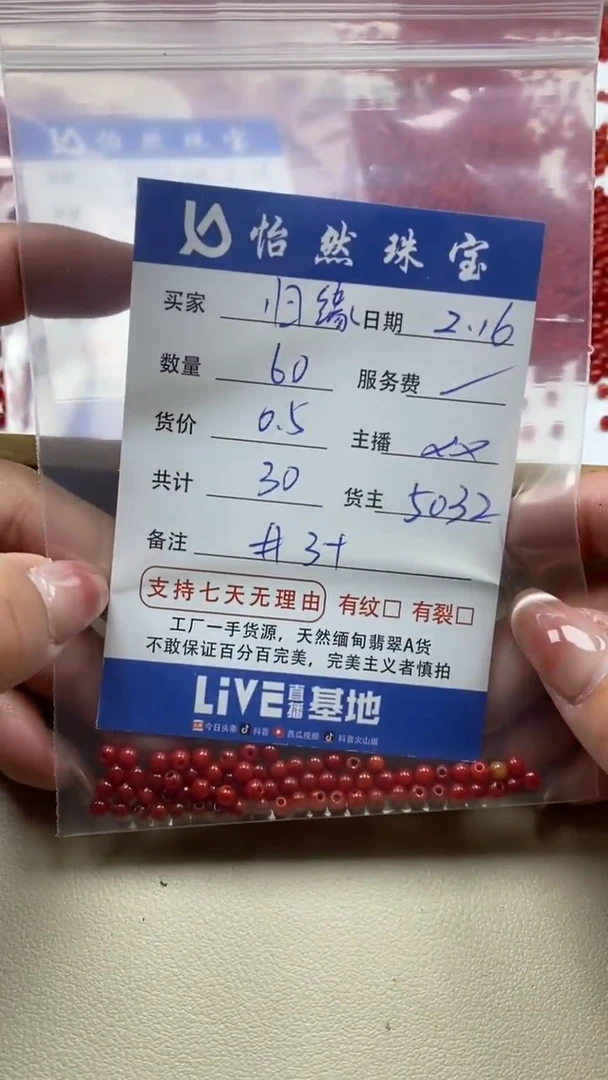 怡然珠宝
买家 归缘 日期 2.16
数量 60 服务费
货价 0.5 主播
共计 30 货主 5032
备注 # 3+
支持七天无理由 有纹□ 有裂□
工厂一手货源，天然缅甸翡翠A货
不敢保证百分百完美，完美主义者慎拍
LiVE直播基地
今日头条 抖音 西瓜视频 抖音火山版
怡然珠宝